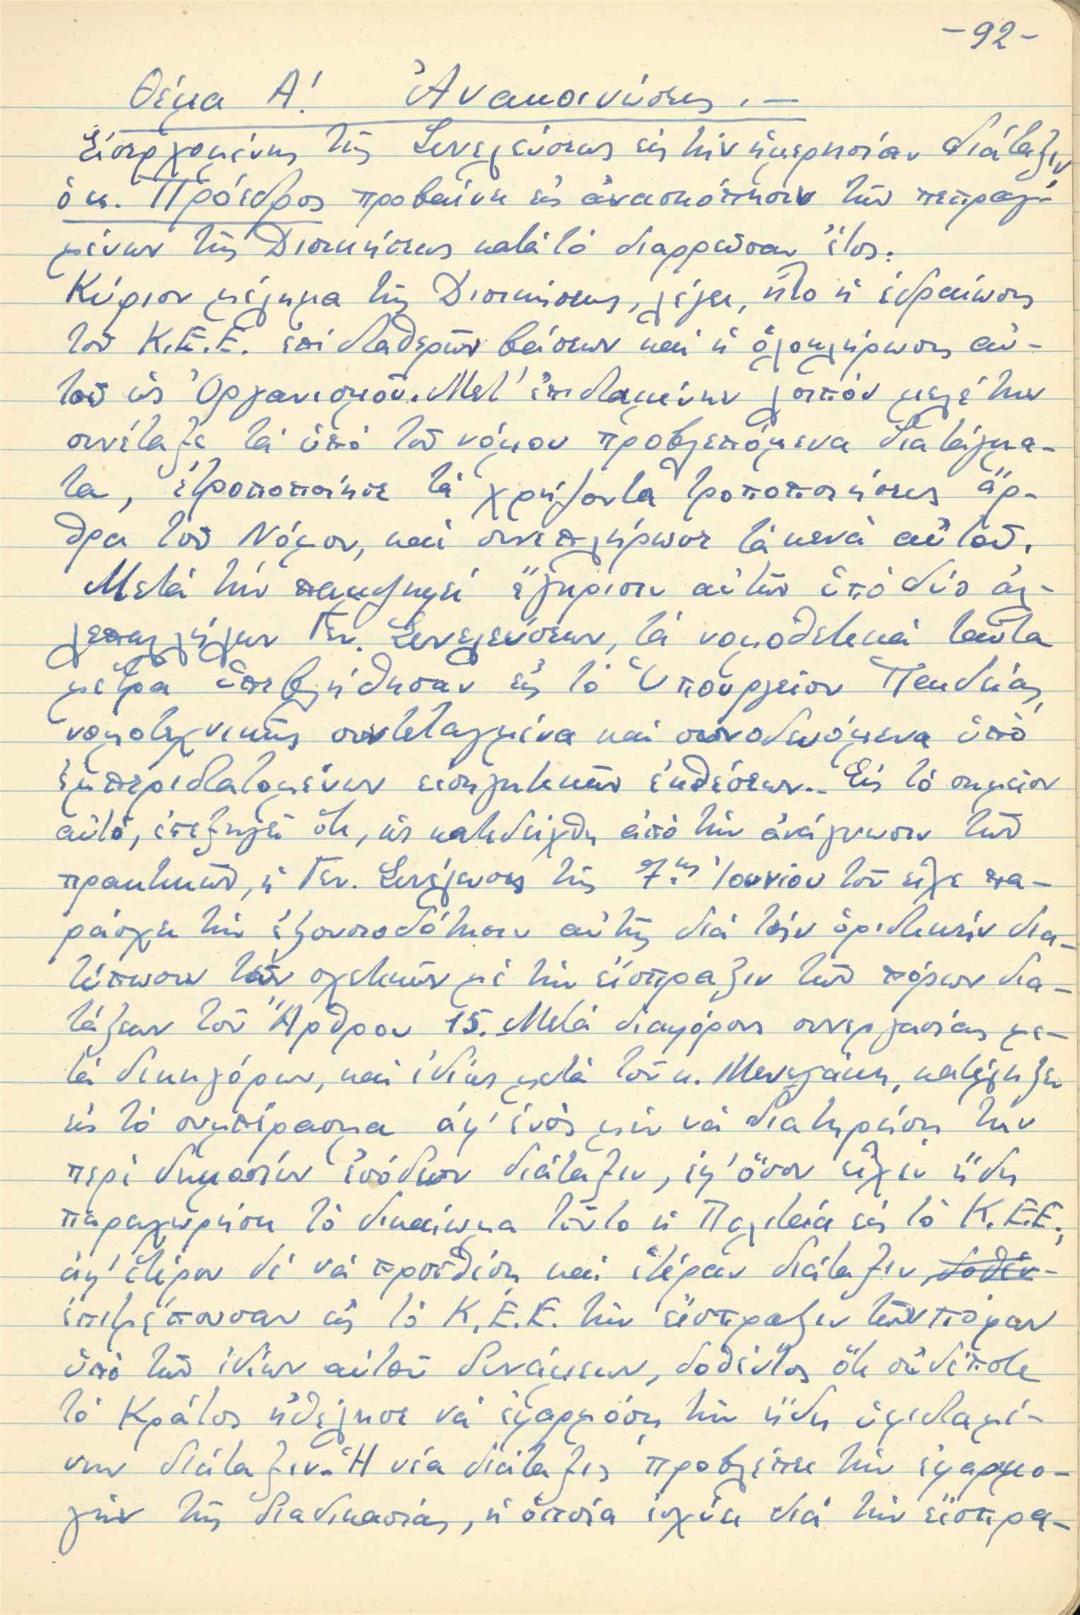 -92-
Θέμα Α! Ἀνακοινώσεις.—
Εἰσερχομένης τῆς Συνελεύσεως εἰς τὴν ἡμερησίαν διάταξιν
ὁ κ. Πρόεδρος προβαίνει εἰς ἀνασκόπησιν τῶν πεπραγ-
μένων τῆς Διοικήσεως κατὰ τὸ διαρρεῦσαν ἔτος.
Κύριον μέλημα τῆς Διοικήσεως, λέγει, ἦτο ἡ ἑδραίωσις
τοῦ Κ.Ε.Ε. ἐπὶ σταθερῶν βάσεων καὶ ἡ ὁλοκλήρωσις αὐ-
τοῦ ὡς Ὀργανισμοῦ. Μετ' ἐπισταμένην λοιπόν μελέτην
συνέταξε τὰ ὑπὸ τοῦ νόμου προβλεπόμενα διατάγμα-
τα, ἐτροποποίησε τὰ χρήζοντα τροποποιήσεως ἄρ-
θρα τοῦ Νόμου, καὶ συνεπλήρωσε τὰ κενὰ αὐτοῦ.
Μετὰ τὴν παμψηφεί ἔγκρισιν αὐτῶν ὑπὸ δύο ἀλ-
λεπαλλήλων Γεν. Συνελεύσεων, τὰ νομοθετικὰ ταῦτα
μέτρα ὑπεβλήθησαν εἰς τὸ Ὑπουργεῖον Παιδείας,
νομοτεχνικῶς συντεταγμένα καὶ συνοδευόμενα ὑπὸ
ἐμπεριστατωμένων εἰσηγητικῶν ἐκθέσεων.- Εἰς τὸ σημεῖον
αὐτό, ἐπεξηγεῖ ὅτι, ὡς κατεδείχθη ἀπὸ τὴν ἀνάγνωσιν τῶν
πρακτικῶν, ἡ Γεν. Συνέλευσις τῆς 7.ης Ἰουνίου τοῦ εἶχε πα-
ράσχει τὴν ἐξουσιοδότησιν αὐτῆς διὰ τὴν ὁριστικὴν δια-
τύπωσιν τῶν σχετικῶν μὲ τὴν εἴσπραξιν τῶν πόρων δια-
τάξεων τοῦ Ἄρθρου 15. Μετὰ διαφόρους συνεργασίας με-
τὰ δικηγόρων, καὶ ἰδίως μετὰ τοῦ κ. Μενεγάκη, κατέληξεν
εἰς τὸ συμπέρασμα ἀφ' ἑνὸς μὲν νὰ διατηρήσῃ τὴν
περὶ δημοσίων ἐσόδων διάταξιν, ἐφ' ὅσον εἶχεν ἤδη
παραχωρήσει τὸ δικαίωμα τοῦτο ἡ Πολιτεία εἰς τὸ Κ.Ε.Ε.,
ἀφ' ἑτέρου δὲ νὰ προσθέσῃ καὶ ἑτέραν διάταξιν,
ἐπιτρέπουσαν εἰς τὸ Κ.Ε.Ε. τὴν εἴσπραξιν τῶν πόρων
ὑπὸ τῶν ἰδίων αὐτοῦ δυνάμεων, δοθέντος ὅτι οὐδέποτε
τὸ Κράτος ἠθέλησε νὰ ἐφαρμόσῃ τὴν ἤδη ὑφισταμέ-
νην διάταξιν. Ἡ νέα διάταξις προβλέπει τὴν ἐφαρμο-
γὴν τῆς διαδικασίας, ἡ ὁποία ἰσχύει διὰ τὴν εἴσπρα-